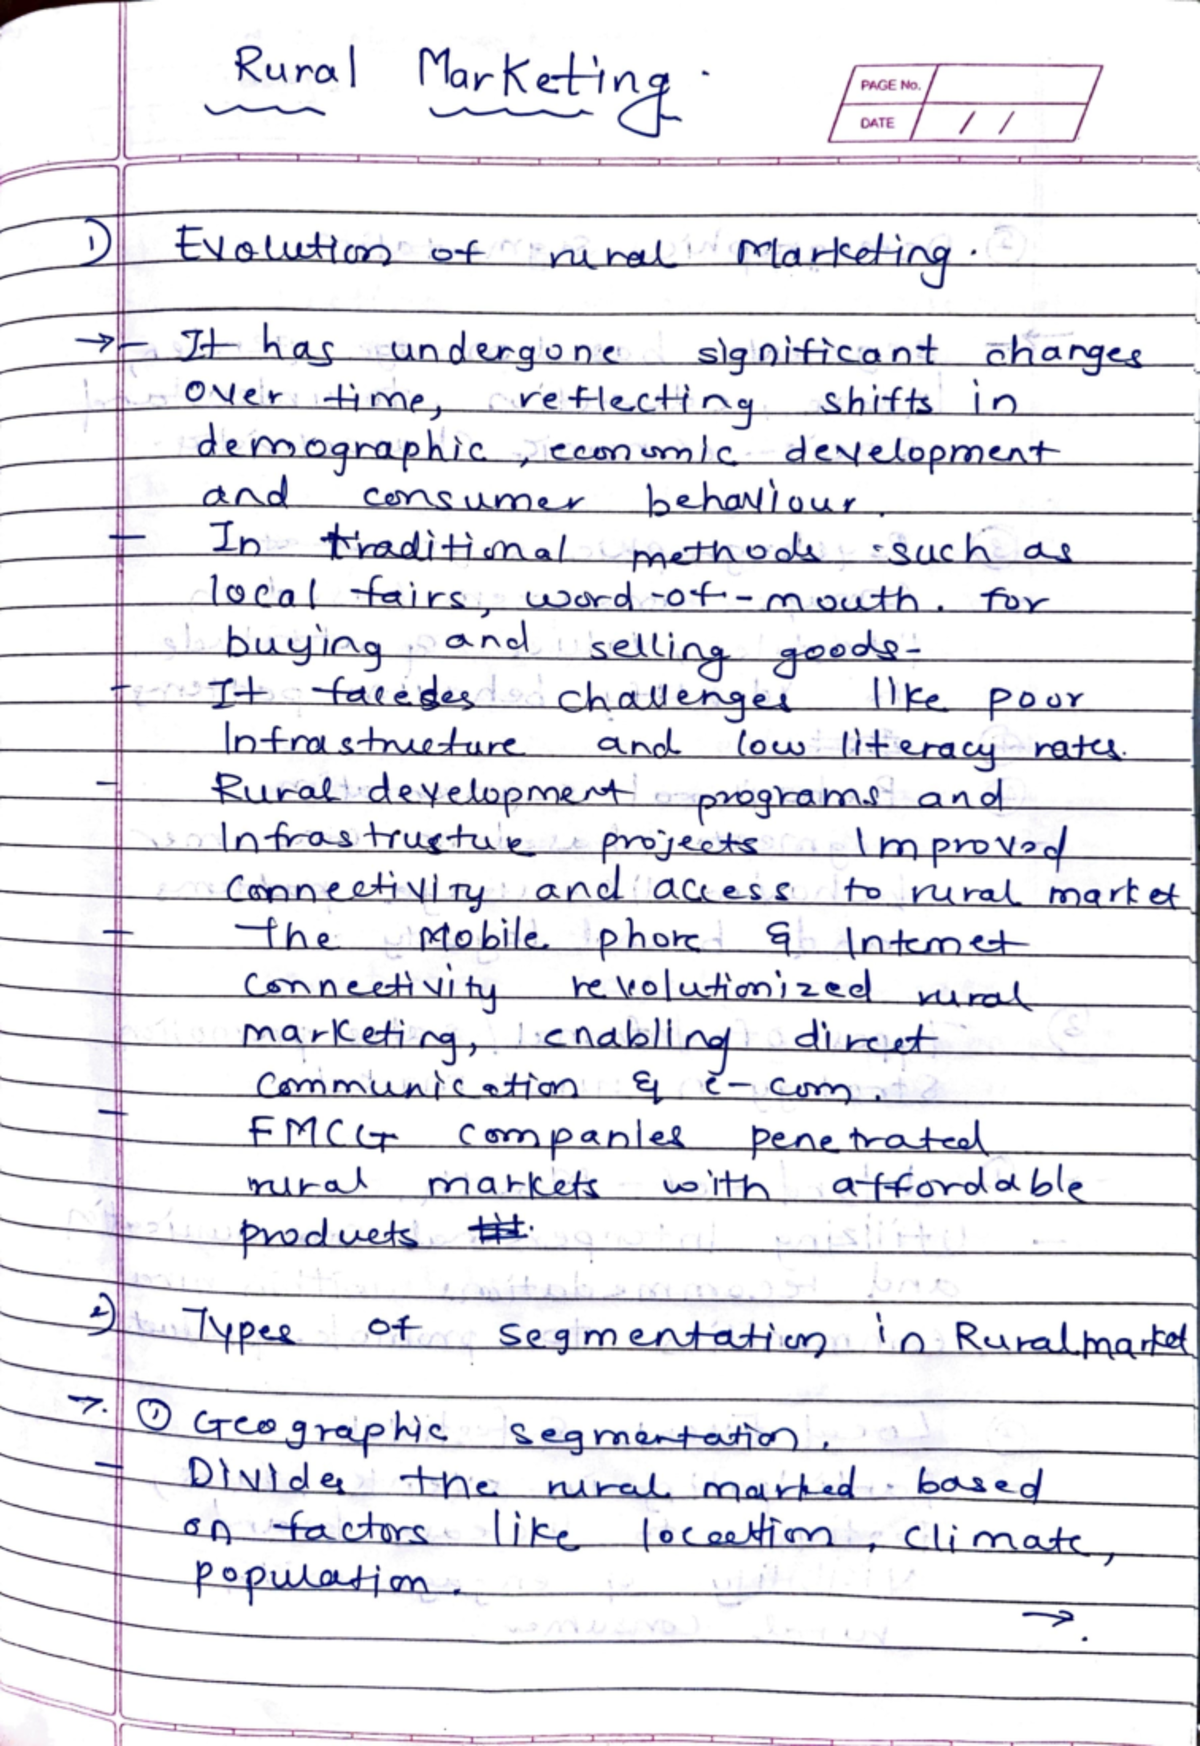 Rural Marketing.
PAGE No.
DATE / /
1) Evolution of rural Marketing.
→ - It has undergone significant changes
over time, reflecting shifts in
demographic, economic development
and consumer behaviour.
- In traditional methods such as
local fairs, word-of-mouth. for
buying and selling goods-
- It challenges like poor
Infrastructure and low literacy rates.
- Rural development programs and
Infrastrusture projects Improved
connectivity and access to rural market
- The Mobile phone & Internet
connectivity revolutionized rural
marketing, enabling direct
communication & e-com.
- FMCG companies penetrated
rural markets with affordable
products
2) Types of segmentation in Rural market
→. ① Geographic segmentation.
- Divides the rural marked based
on factors like location, climate,
population.
→.